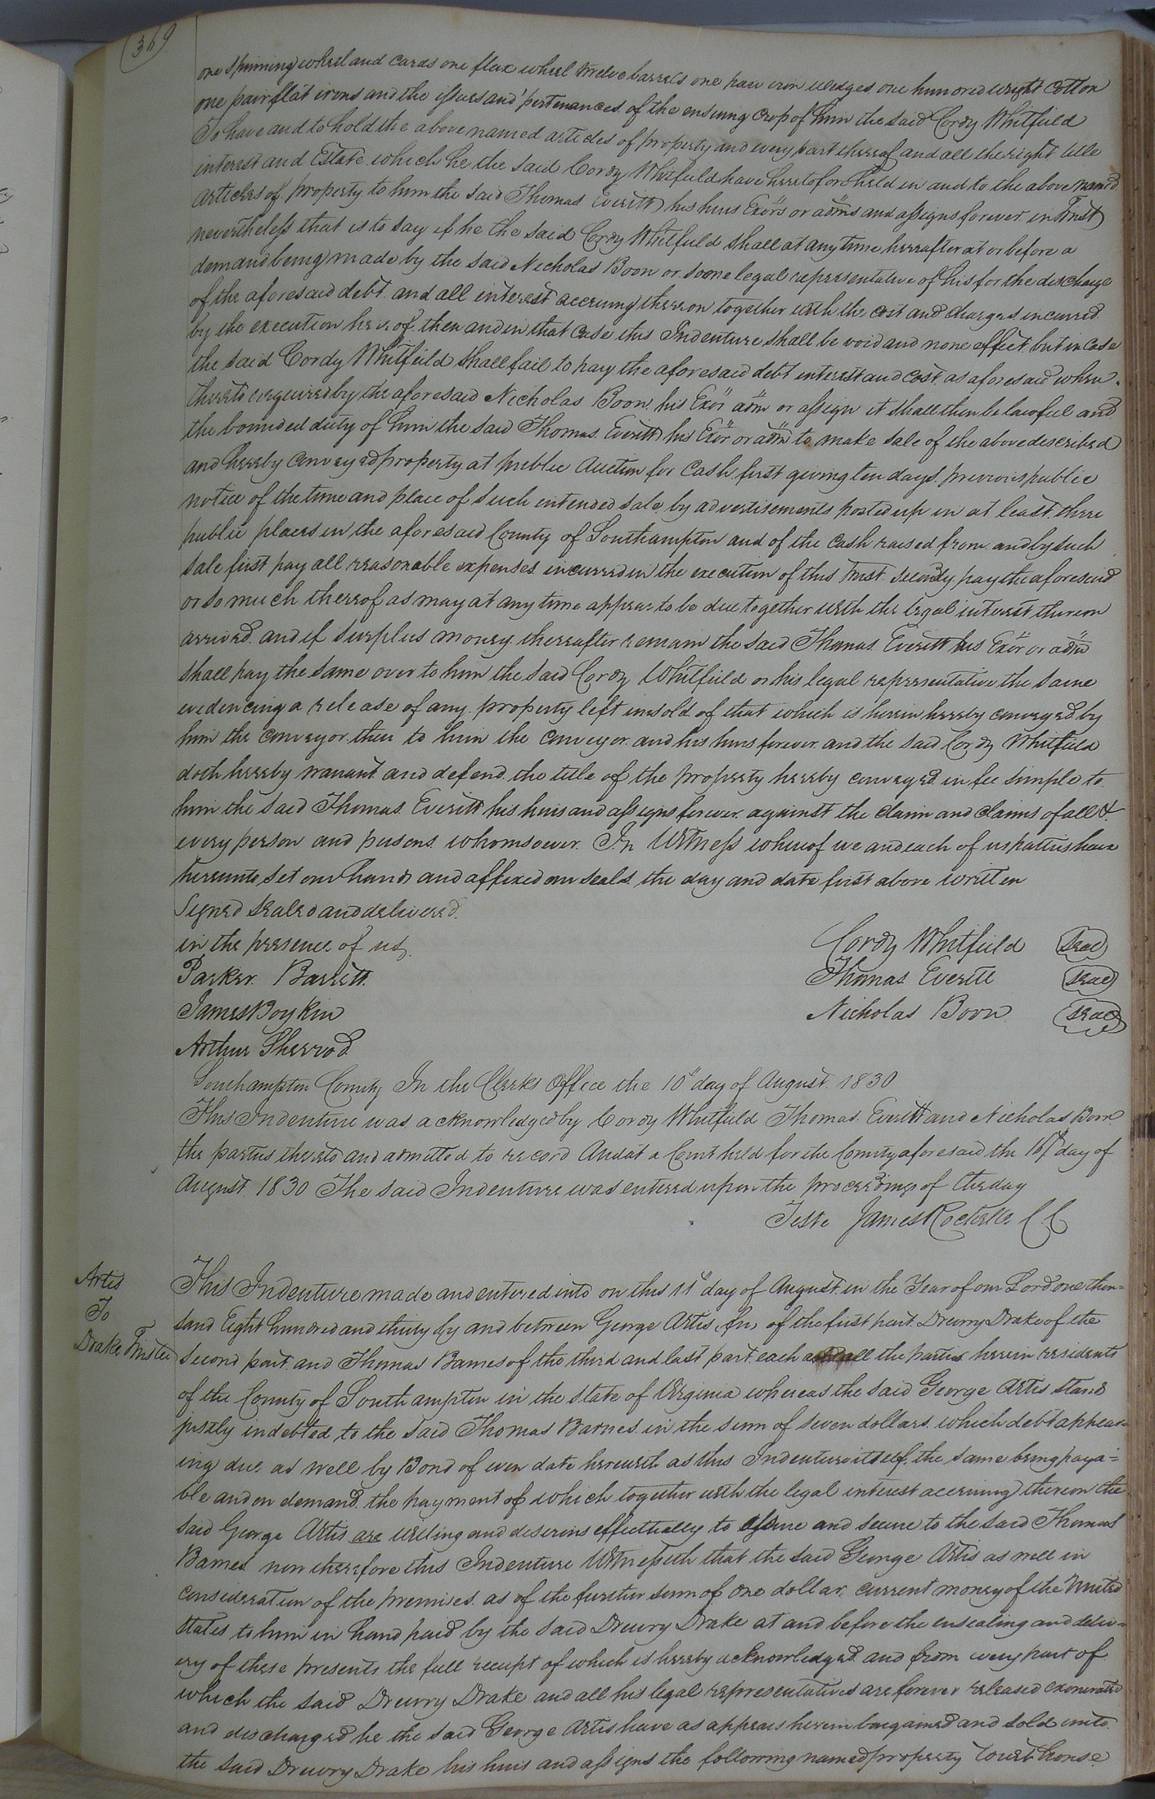 369
one spinning wheel and cards one flax wheel twelve barrels one pair iron wedges one hundred weight cotton
one pair flat irons and the issues and 'pertenances of the ensuing crop of him the said Cordy Whitfield
To have and to hold the above named articles of property and every part thereof and all the right title
interest and Estate which he the said Cordy Whitfield have heretofore held in and to the above named
articles of property to him the said Thomas Everitt his heirs Exors or adms and assigns forever in Trust
nevertheless that is to say if he the said Cordy Whitfield shall at any time hereafter at or before a
demand being made by the said Nicholas Boon or some legal representative of his for the discharge
of the aforesaid debt and all interest accruing thereon together with the cost and charges incurred
by the execution hereof then and in that case this Indenture shall be void and none effect but in case
the said Cordy Whitfield shall fail to pay the aforesaid debt interest and cost as aforesaid when
thereto required by the aforesaid Nicholas Boon his Exor adm or assign it shall then be lawful and
the bounded duty of him the said Thomas Everitt his Exor or adm to make sale of the above described
and hereby conveyed property at public Auction for Cash first giving ten days previous public
notice of the time and place of such intended sale by advertisements posted up in at least three
public places in the aforesaid County of Southampton and of the cash raised from and by such
sale first pay all reasonable expenses incurred in the execution of this Trust Secondly pay the aforesaid
or so much thereof as may at any time appear to be due together with the legal interest thereon
arrived and if surplus money thereafter remain the said Thomas Everitt his Exor or adm
shall pay the same over to him the said Cordy Whitfield or his legal representative the same
evidencing a release of any property left unsold of that which is herein hereby conveyed by
him the conveyor then to him the conveyor and his heirs forever and the said Cordy Whitfield
doth hereby warrant and defend the title of the property hereby conveyed in fee simple to
him the said Thomas Everitt his heirs and assigns forever against the claim and claims of all &
every person and persons whomsoever In Witness whereof we and each of us parties have
hereunto set our hands and affixed our seals the day and date first above written
Signed sealed and delivered
in the presence of us Cordy Whitfield Seal
Parker Barrett Thomas Everitt Seal
James Boykin Nicholas Boon Seal
Arthur Sherrod
Southampton County In the Clerks Office the 10th day of August 1830
This Indenture was acknowledged by Cordy Whitfield Thomas Everitt and Nicholas Boon
the parties thereto and admitted to record And at a Court held for the County aforesaid the day of
August 1830 The said Indenture was entered upon the proceedings of the day
Teste James Rochelle CC
Artis
To
Drake Trustee
This Indenture made and entered into on this 11th day of August in the Year of our Lord one thou=
sand Eight hundred and thirty by and between George Artis of the first part Drewry Drake of the
second part and Thomas Barnes of the third and last part each and all the parties herein residents
of the County of Southampton in the State of Virginia whereas the said George Artis stand
justly indebted to the said Thomas Barnes in the sum of seven dollars which debt appear=
ing due as well by Bond of even date herewith as this Indenture itself the same being paya=
ble and on demand the payment of which together with the legal interest accruing thereon the
said George Artis are willing and desirous effectually to assure and secure to the said Thomas
Barnes now therefore this Indenture Witnesseth that the said George Artis as well in
consideration of the premises as of the further sum of one dollar current money of the United
States to him in hand paid by the said Drewry Drake at and before the ensealing and deliv=
ery of these presents the full receipt of which is hereby acknowledged and from every part of
which the said Drewry Drake and all his legal representatives are forever released exonerated
and discharged he the said George Artis have as appears herein bargained and sold unto
the said Drewry Drake his heirs and assigns the following named property Courthouse